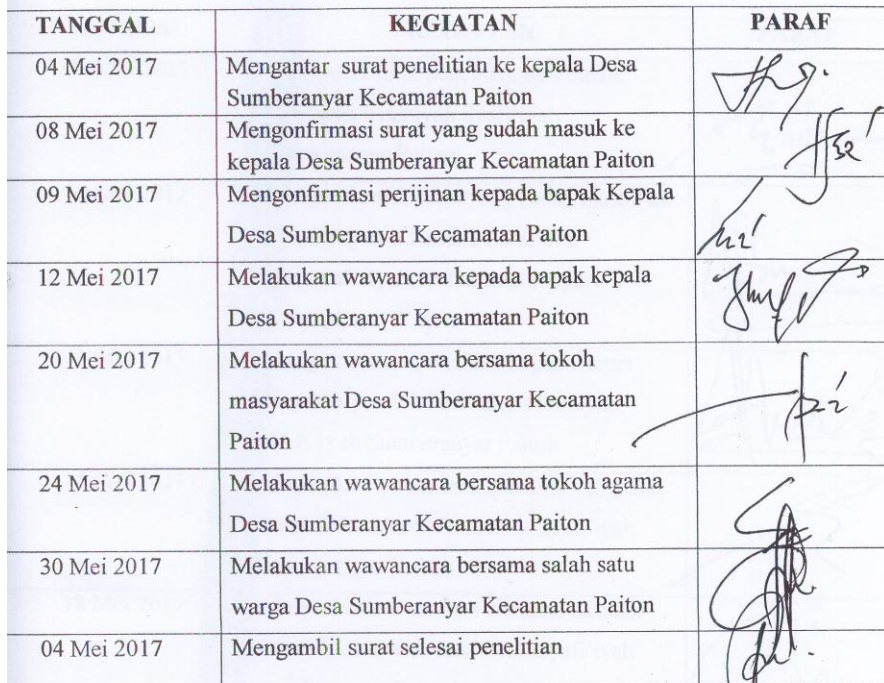 TANGGAL KEGIATAN PARAF
04 Mei 2017 Mengantar surat penelitian ke kepala Desa
Sumberanyar Kecamatan Paiton
08 Mei 2017 Mengonfirmasi surat yang sudah masuk ke
kepala Desa Sumberanyar Kecamatan Paiton
09 Mei 2017 Mengonfirmasi perijinan kepada bapak Kepala
Desa Sumberanyar Kecamatan Paiton
12 Mei 2017 Melakukan wawancara kepada bapak kepala
Desa Sumberanyar Kecamatan Paiton
20 Mei 2017 Melakukan wawancara bersama tokoh
masyarakat Desa Sumberanyar Kecamatan
Paiton
24 Mei 2017 Melakukan wawancara bersama tokoh agama
Desa Sumberanyar Kecamatan Paiton
30 Mei 2017 Melakukan wawancara bersama salah satu
warga Desa Sumberanyar Kecamatan Paiton
04 Mei 2017 Mengambil surat selesai penelitian